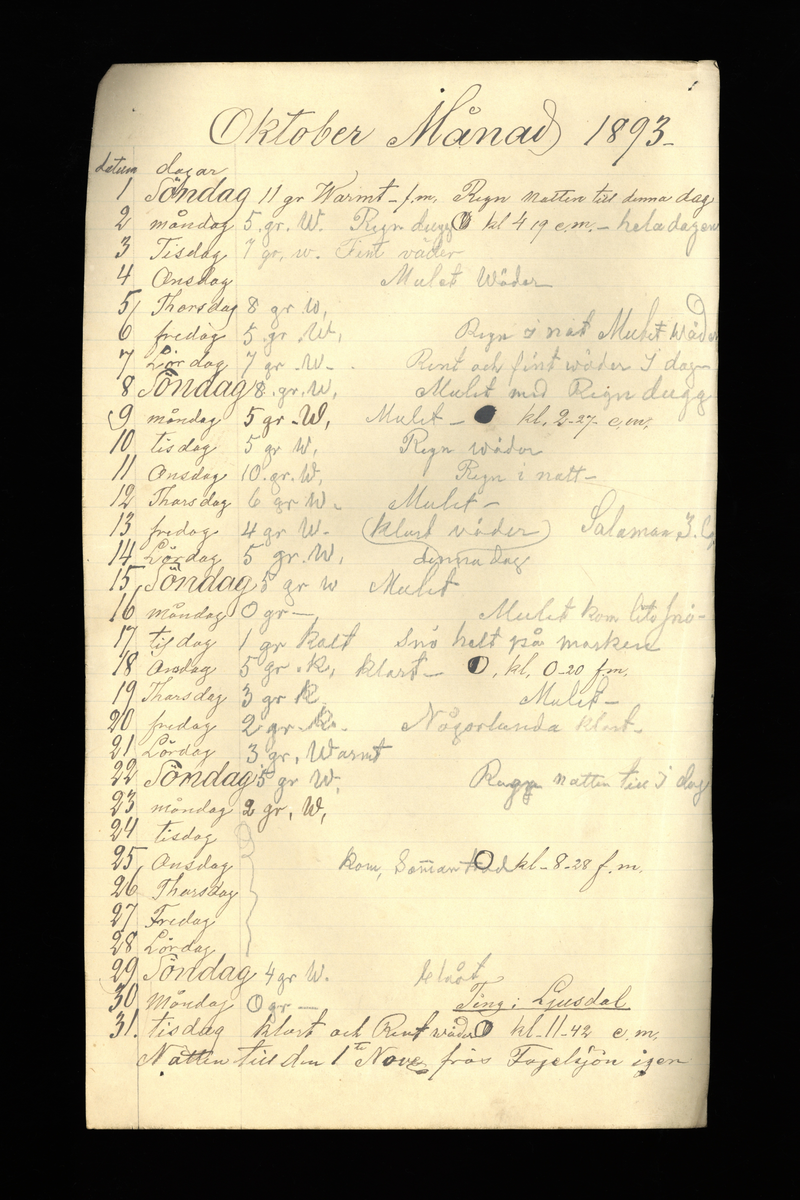 Oktober Månad 1893
datum dagar
1 Söndag 11 gr Warmt - f.m. Regn natten till denna dag
2 måndag 5. gr. W. Regn dugg kl 4 19 e.m. - hela dagen
3 Tisdag 7 gr. w. Fint väder
4 Onsdag Mulet Wäder
5 Thorsdag 8 gr W,
6 fredag 5 gr. W, Regn i nat Mulet
7 Lördag 7 gr. W- Rent och fint wäder I dag-
8 Söndag 8. gr. W, Mulet med Regn dugg
9 måndag 5 gr. W, Mulet - kl. 2-27- e.m.
10 tisdag 5 gr W, Regn wäder
11 Onsdag 10. gr. W, Regn i natt-
12 Thorsdag 6 gr W - Mulet -
13 fredag 4 gr W- (klart väder)
14 Lördag 5 gr. W, denna dag
15 Söndag 5 gr W Mulet
16 måndag 0 gr - Mulet kom lite snö-
17 tisdag 1 gr kalt Snö helt på marken
18 Onsdag 5 gr. K, klart - , kl, 0-20 f.m.
19 Thorsdag 3 gr K Mulet -
20 fredag 2 gr. K. Någorlunda klart-
21 Lördag 3 gr, Warmt
22 Söndag 5 gr W, Regn natten till I dag
23 måndag 2 gr, W,
24 tisdag
25 Onsdag kom, kl - 8-28 f.m.
26 Thorsdag
27 Fredag
28 Lördag
29 Söndag 4 gr W. blåst
30 Måndag 0 gr - Ting i Ljusdal
31. tisdag klart och Rent wäder kl-11-42 e.m.
Natten till den 1te Nove frös Fågelsjön igen